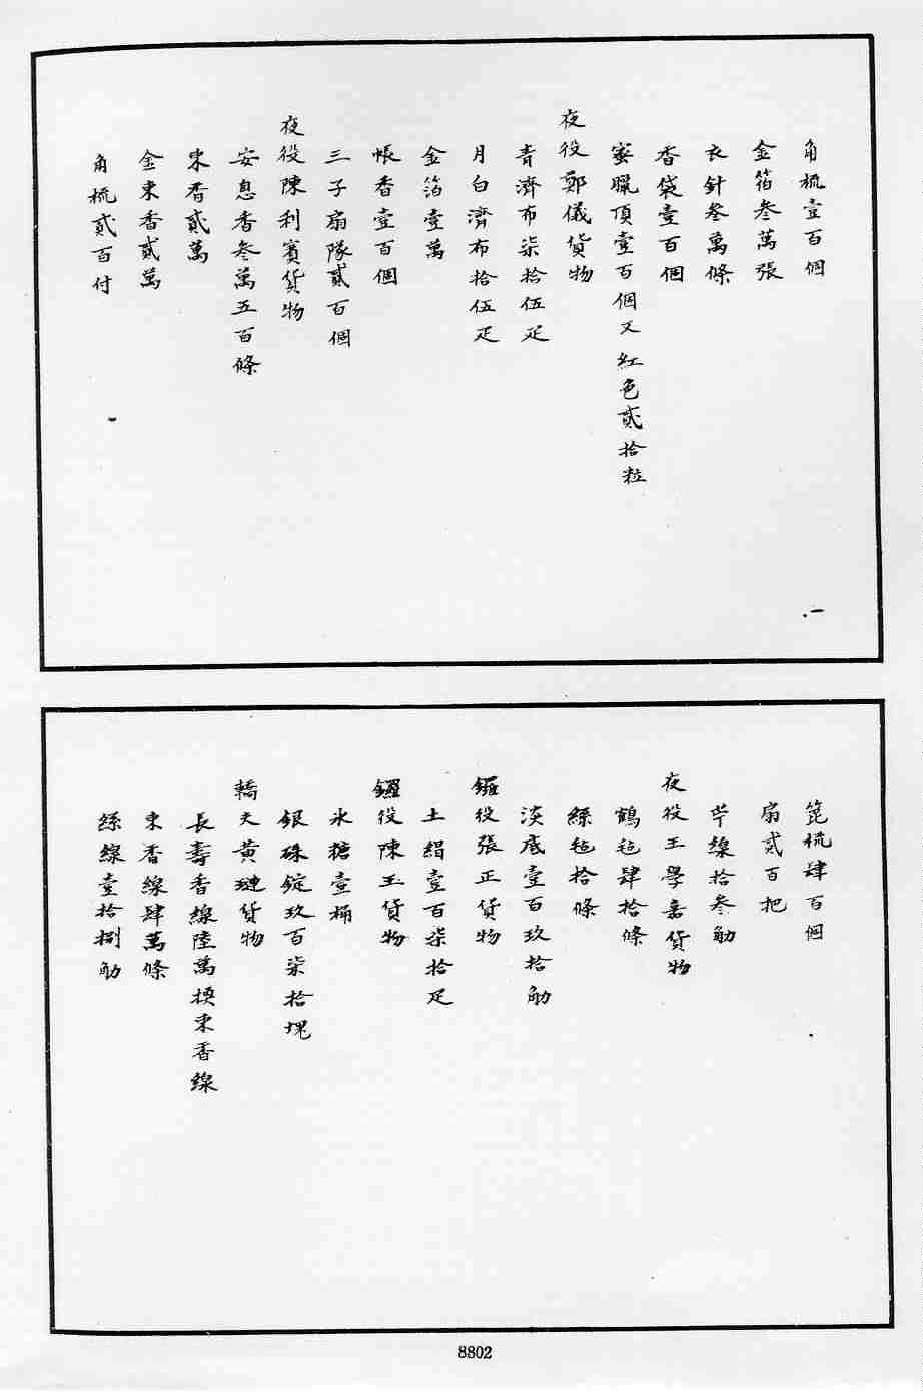 角梳壹百個
金箔叁萬張
衣針叁萬條
香袋壹百個
蜜臘頂壹百個又紅色貳拾粒
夜役鄭儀貨物
青濟布柒拾伍疋
月白濟布拾伍疋
金箔壹萬
帳香壹百個
三子扇隊貳百個
夜役陳利賓貨物
安息香叁萬五百條
束香貳萬
金束香貳萬
角梳貳百付
篦梳肆百個
扇貳百把
苧線拾叁觔
夜役王學嘉貨物
鶴毡肆拾條
絲毡拾條
淡底壹百玖拾觔
鑼役張正貨物
土絹壹百柒拾疋
鑼役陳玉貨物
氷糖壹桶
銀硃錠玖百柒拾塊
轎夫黃璉貨物
長壽香線陸萬揬束香線
束香線肆萬條
絲線壹拾捌觔
8802